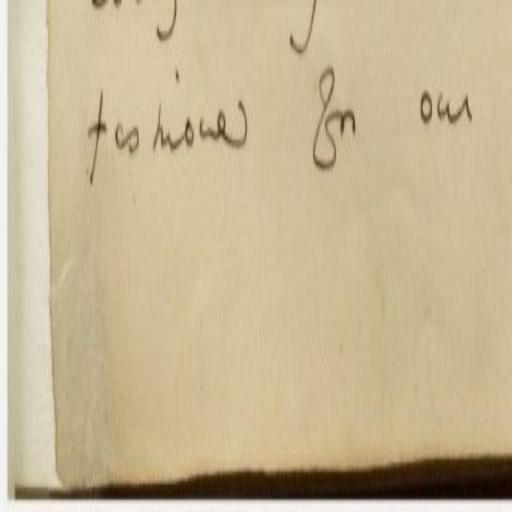 fashioned for our